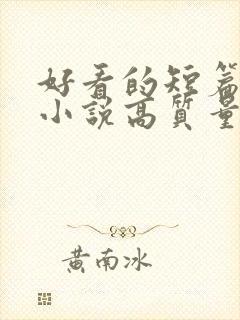 好看的短篇
小说高質量
黄南冰